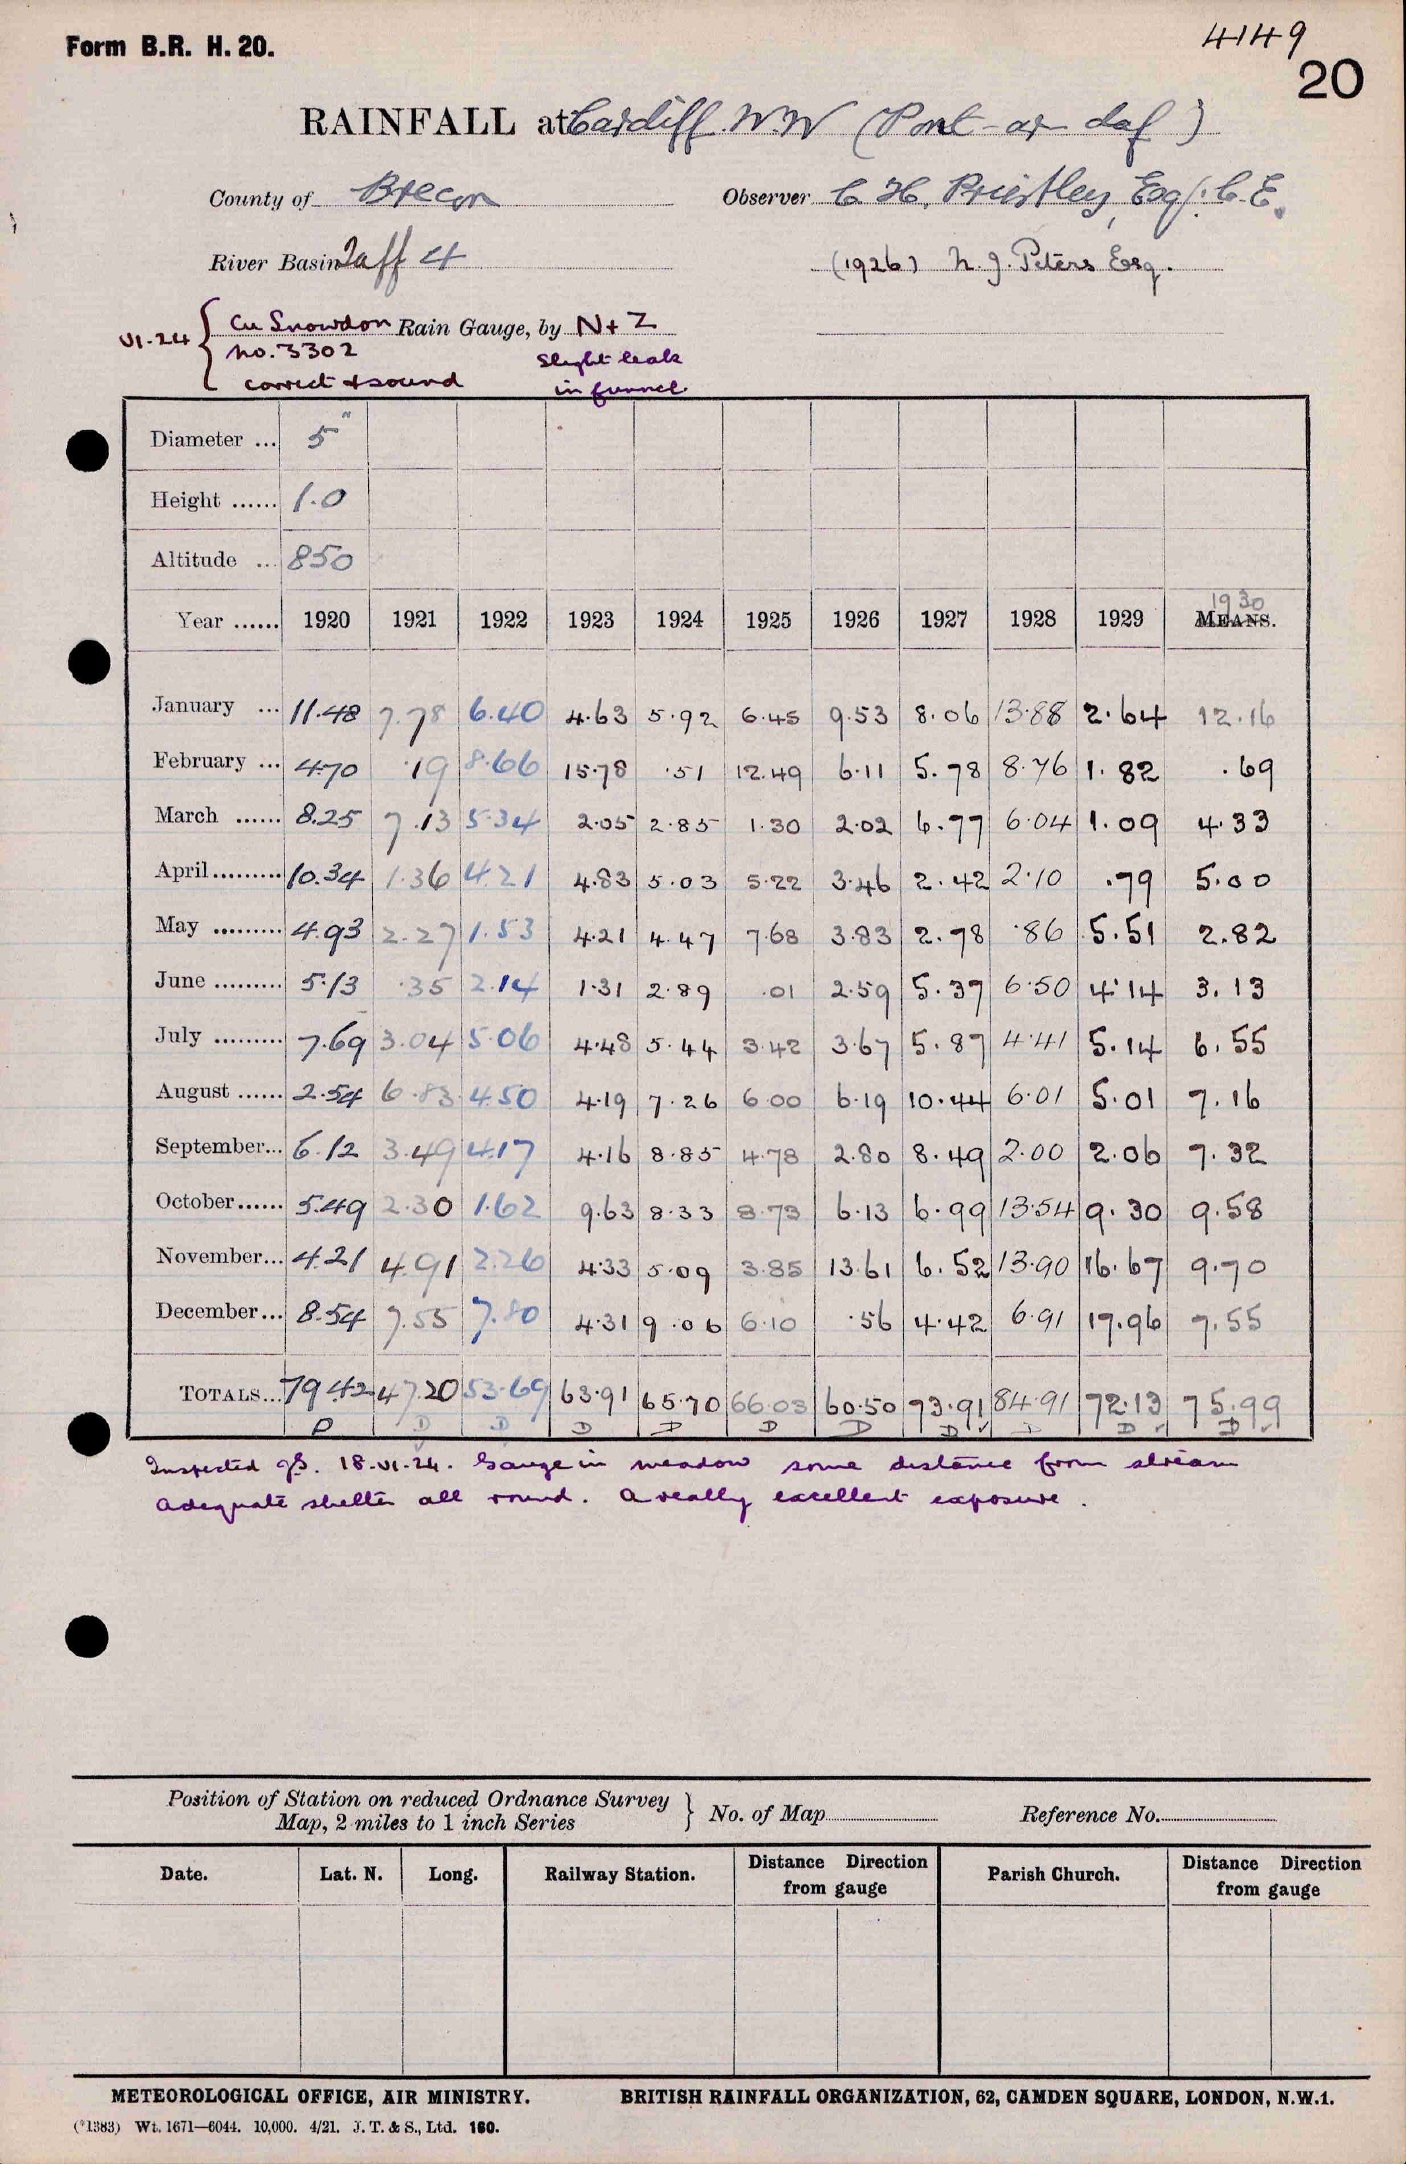 Form B.R. H. 20.
4149
20
RAINFALL at Cardiff W.W (Pont-ar-daf)
County of Brecon Observer C. H. Priestley, Esq. C.E.
River Basin Taff 4 (1926) N. J. Peters Esq.
VI.24 { Cu Snowdon Rain Gauge, by N+Z
No. 3302 Slight leak
correct & sound in funnel.
Diameter ... 5"
Height ...... 1.0
Altitude ... 850
1930
Year ...... 1920 1921 1922 1923 1924 1925 1926 1927 1928 1929 MEANS.
January ... 11.48 7.78 6.40 4.63 5.92 6.45 9.53 8.06 13.88 2.64 12.16
February ... 4.70 .19 8.66 15.78 .51 12.49 6.11 5.78 8.76 1.82 .69
March ...... 8.25 7.13 5.34 2.05 2.85 1.30 2.02 6.77 6.04 1.09 4.33
April ......... 10.34 1.36 4.21 4.83 5.03 5.22 3.46 2.42 2.10 .79 5.00
May ......... 4.93 2.27 1.53 4.21 4.47 7.68 3.83 2.78 .86 5.51 2.82
June ......... 5.13 .35 2.14 1.31 2.89 .01 2.59 5.37 6.50 4.14 3.13
July ......... 7.69 3.04 5.06 4.48 5.44 3.42 3.67 5.87 4.41 5.14 6.55
August ...... 2.54 6.83 4.50 4.19 7.26 6.00 6.19 10.44 6.01 5.01 7.16
September... 6.12 3.49 4.17 4.16 8.85 4.78 2.80 8.49 2.00 2.06 7.32
October...... 5.49 2.30 1.62 9.63 8.33 8.73 6.13 6.99 13.54 9.30 9.58
November... 4.21 4.91 2.26 4.33 5.09 3.85 13.61 6.52 13.90 16.67 9.70
December... 8.54 7.55 7.80 4.31 9.06 6.10 .56 4.42 6.91 17.96 7.55
TOTALS... 79.42 47.20 53.69 63.91 65.70 66.03 60.50 73.91 84.91 72.13 75.99
D D D D D D D D D D D
Inspected 18.VI.24. Gauge in meadow some distance from stream
Adequate shelter all round. A really excellent exposure.
Position of Station on reduced Ordnance Survey
Map, 2 miles to 1 inch Series } No. of Map Reference No.
Date. Lat. N. Long. Railway Station. Distance Direction from gauge Parish Church. Distance Direction from gauge
METEOROLOGICAL OFFICE, AIR MINISTRY. BRITISH RAINFALL ORGANIZATION, 62, CAMDEN SQUARE, LONDON, N.W.1.
(*1383) Wt. 1671—6044. 10,000. 4/21. J. T. & S., Ltd. 160.